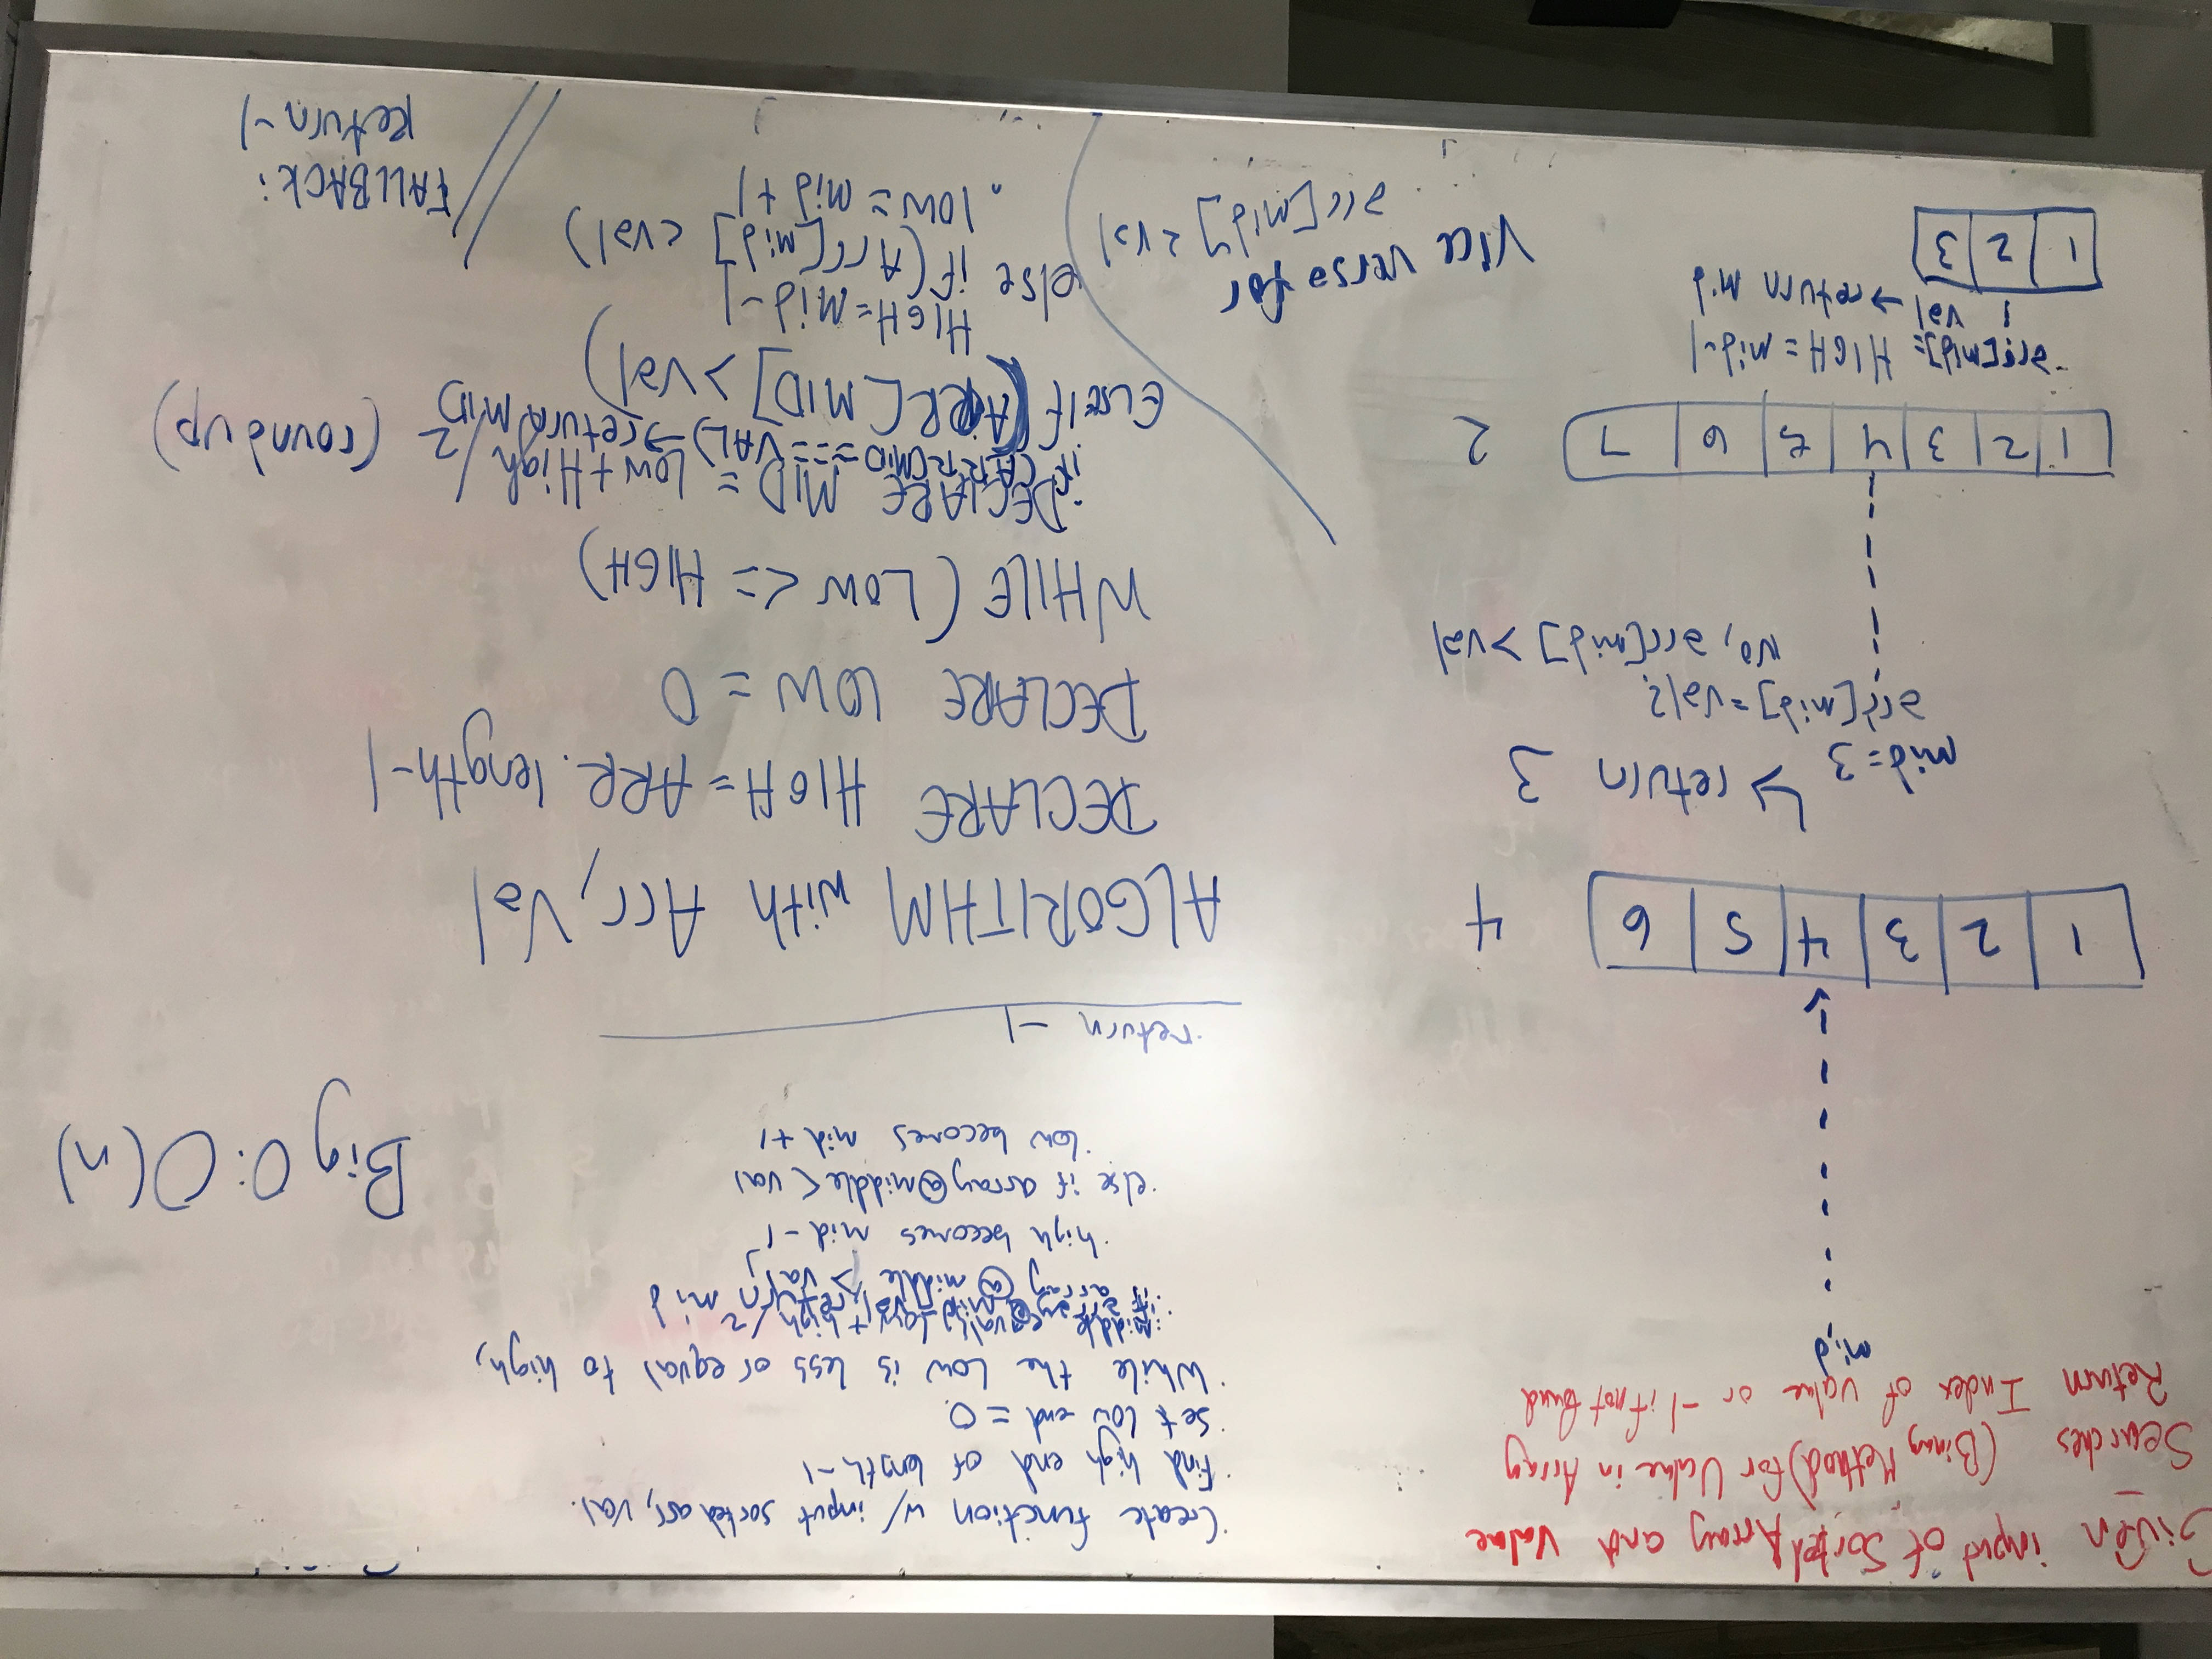 Given input of Sorted Array and Value
Searches (Binary Method) for Value in Array
Return Index of Value or -1 if not found
mid
1 2 3 4 5 6 4
↳ return 3
mid=3
arr[mid]=val?
No, arr[mid] > val
1 2 3 4 5 6 7 2
arr[mid]= HIGH = mid-1
val → return mid
1 2 3
Vice versa for
arr[mid] < val
. Create function w/ input sorted arr, val.
. Find high end of length-1
. Set low end = 0
. While the low is less or equal to high,
. middle equals low + high /2
. if array@mid = val, return mid
. if array @ middle > val,
. high becomes mid-1
. else if array@middle < val
. low becomes mid+1
. return -1
Big O: O(n)
ALGORITHM with Arr, Val
DECLARE HIGH = ARR.length-1
DECLARE LOW = 0
WHILE (LOW <= HIGH)
. DECLARE MID = Low + High / 2 (round up)
if (ARR[MID] === VAL) → return MID
ELSE IF (ARR[MID] > Val)
HIGH = Mid-1
else if (Arr[mid] < val)
. low = mid+1
FALLBACK:
Return -1